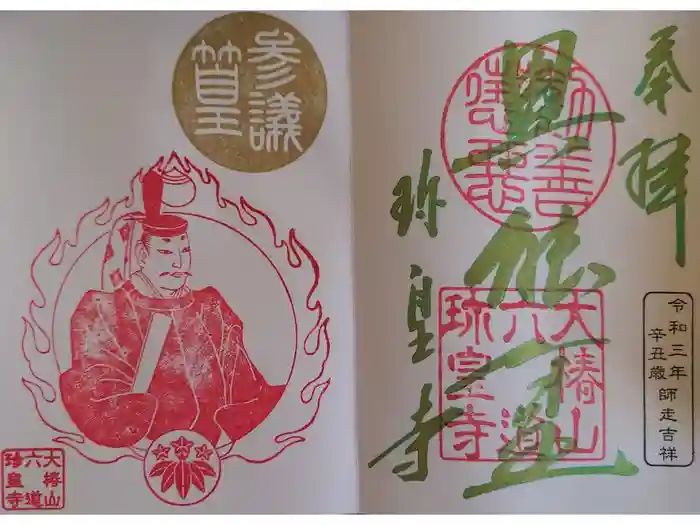 奉拝
勧善
懲悪
大椿山
六道
珎皇寺
珎皇寺
令和三年
辛丑歳
師走吉祥
參議
篁
大椿山
六道
珎皇寺